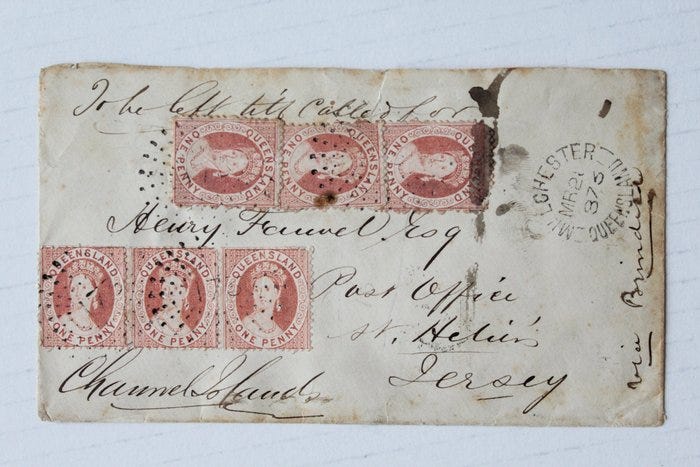 To be left till called for
QUEENSLAND
ONE PENNY
QUEENSLAND
ONE PENNY
QUEENSLAND
ONE PENNY
MILCHESTER TOWN
MR 21
1875
QUEENSLAND
Henry Fauvel Esq
QUEENSLAND
ONE PENNY
QUEENSLAND
ONE PENNY
QUEENSLAND
ONE PENNY
Post Office
St. Helier's
Jersey
Channel Islands
via Brindisi